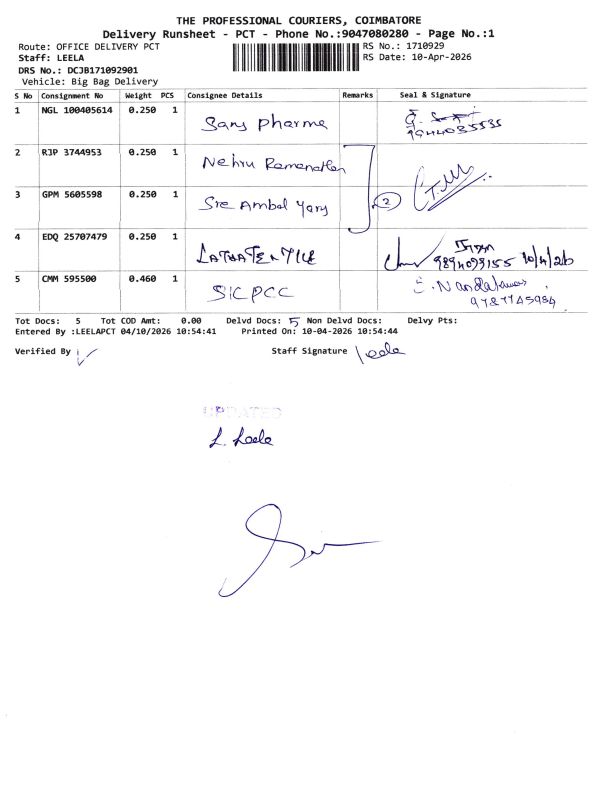 THE PROFESSIONAL COURIERS, COIMBATORE
Delivery Runsheet - PCT - Phone No.:9047080280 - Page No.:1
Route: OFFICE DELIVERY PCT RS No.: 1710929
Staff: LEELA RS Date: 10-Apr-2026
DRS No.: DCJB171092901
Vehicle: Big Bag Delivery
S No Consignment No Weight PCS Consignee Details Remarks Seal & Signature
1 NGL 100405614 0.250 1 Sans Pharma
9944035535
2 RJP 3744953 0.250 1 Nehru Ramanathan
3 GPM 5605598 0.250 1 Sre Ambal Yarn 2
4 EDQ 25707479 0.250 1
9894093155 10/4/26
5 CMM 595500 0.460 1 SICPCC
9787745984
Tot Docs: 5 Tot COD Amt: 0.00 Delvd Docs: 5 Non Delvd Docs: Delvy Pts:
Entered By :LEELAPCT 04/10/2026 10:54:41 Printed On: 10-04-2026 10:54:44
Verified By Staff Signature Leela
UPDATED
L. Leela